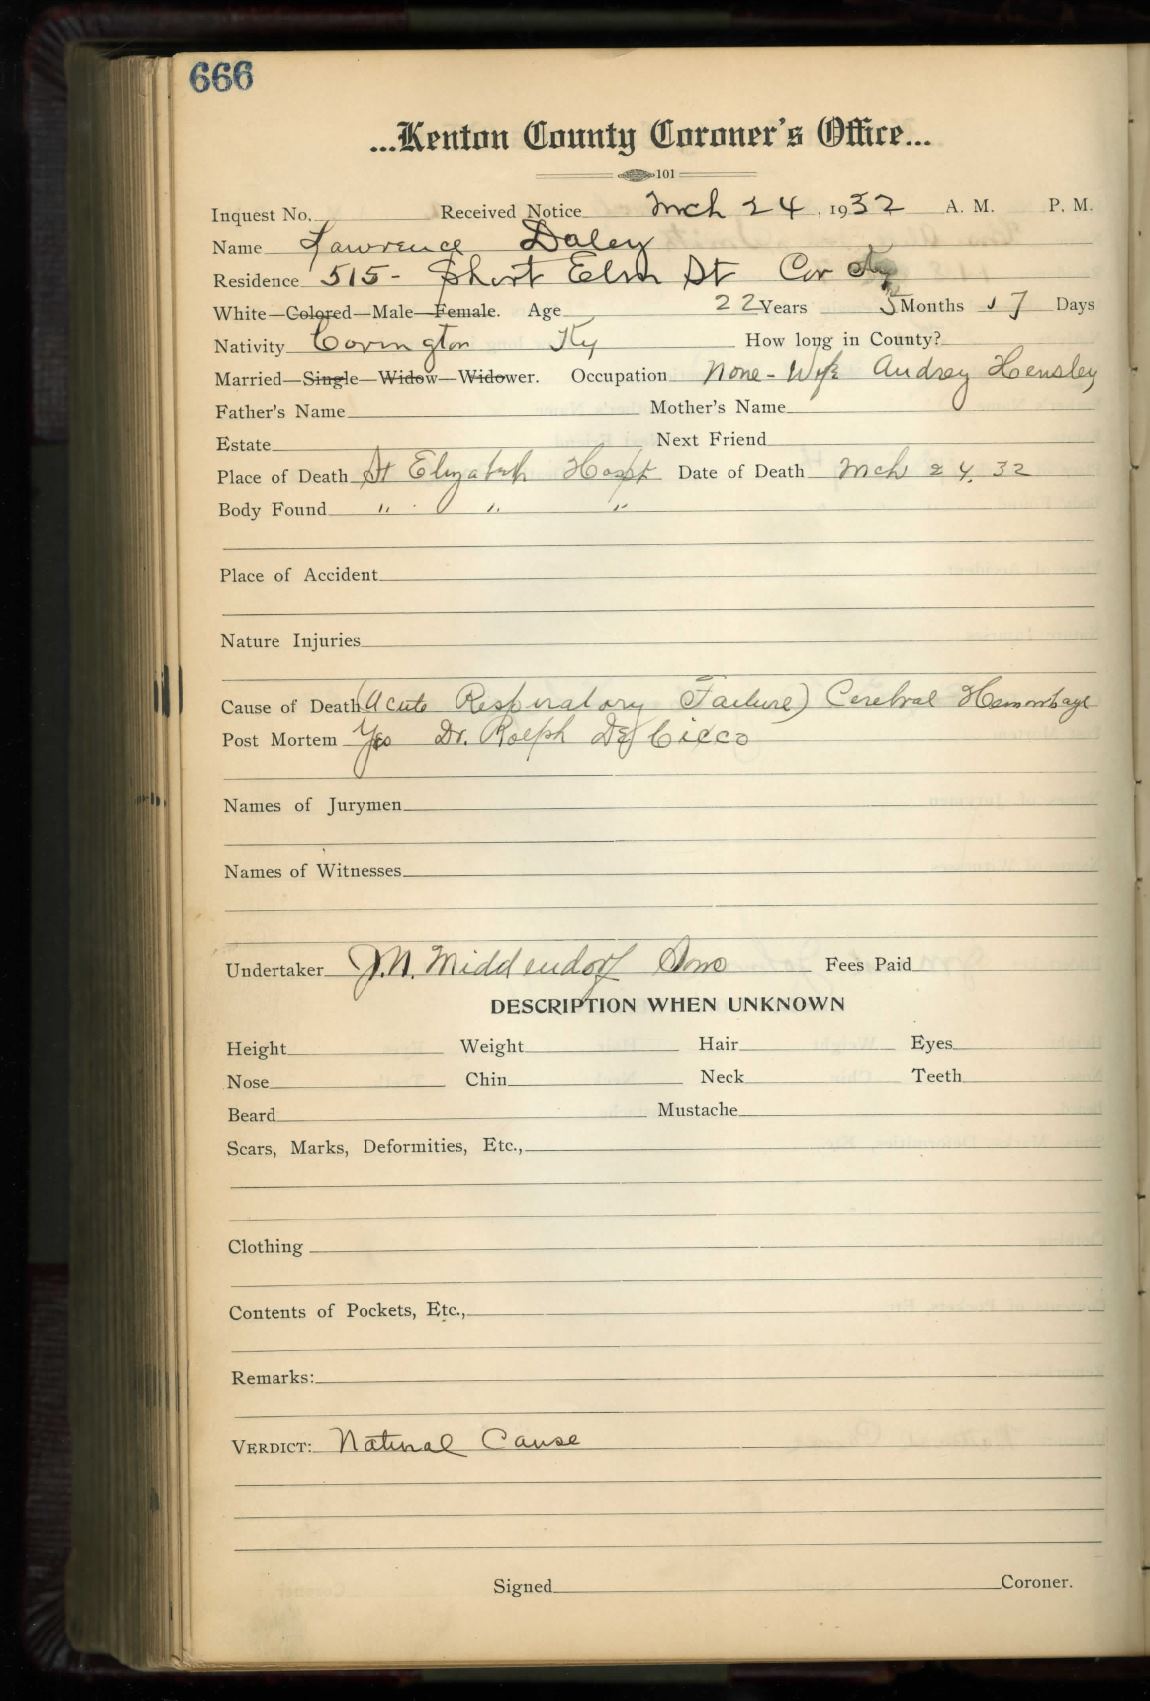 666
...Kenton County Coroner's Office...
101
Inquest No. Received Notice Mch 24, 1932 A. M. P. M.
Name Lawrence Daley
Residence 515- Short Elm St Cov Ky
White—Colored—Male—Female. Age 22 Years 5 Months 17 Days
Nativity Covington Ky How long in County?
Married—Single—Widow—Widower. Occupation None - Wife Audrey Hensley
Father's Name Mother's Name
Estate Next Friend
Place of Death St Elizabeth Hospt Date of Death Mch 24. 32
Body Found " " "
Place of Accident
Nature Injuries
Cause of Death (Acute Respiratory Failure) Cerebral Hemorrhage
Post Mortem Yes Dr. Rolph De Cicco
Names of Jurymen
Names of Witnesses
Undertaker J.N. Middendorf Sons Fees Paid
DESCRIPTION WHEN UNKNOWN
Height Weight Hair Eyes
Nose Chin Neck Teeth
Beard Mustache
Scars, Marks, Deformities, Etc.,
Clothing
Contents of Pockets, Etc.,
Remarks:
VERDICT: Natural Cause
Signed Coroner.